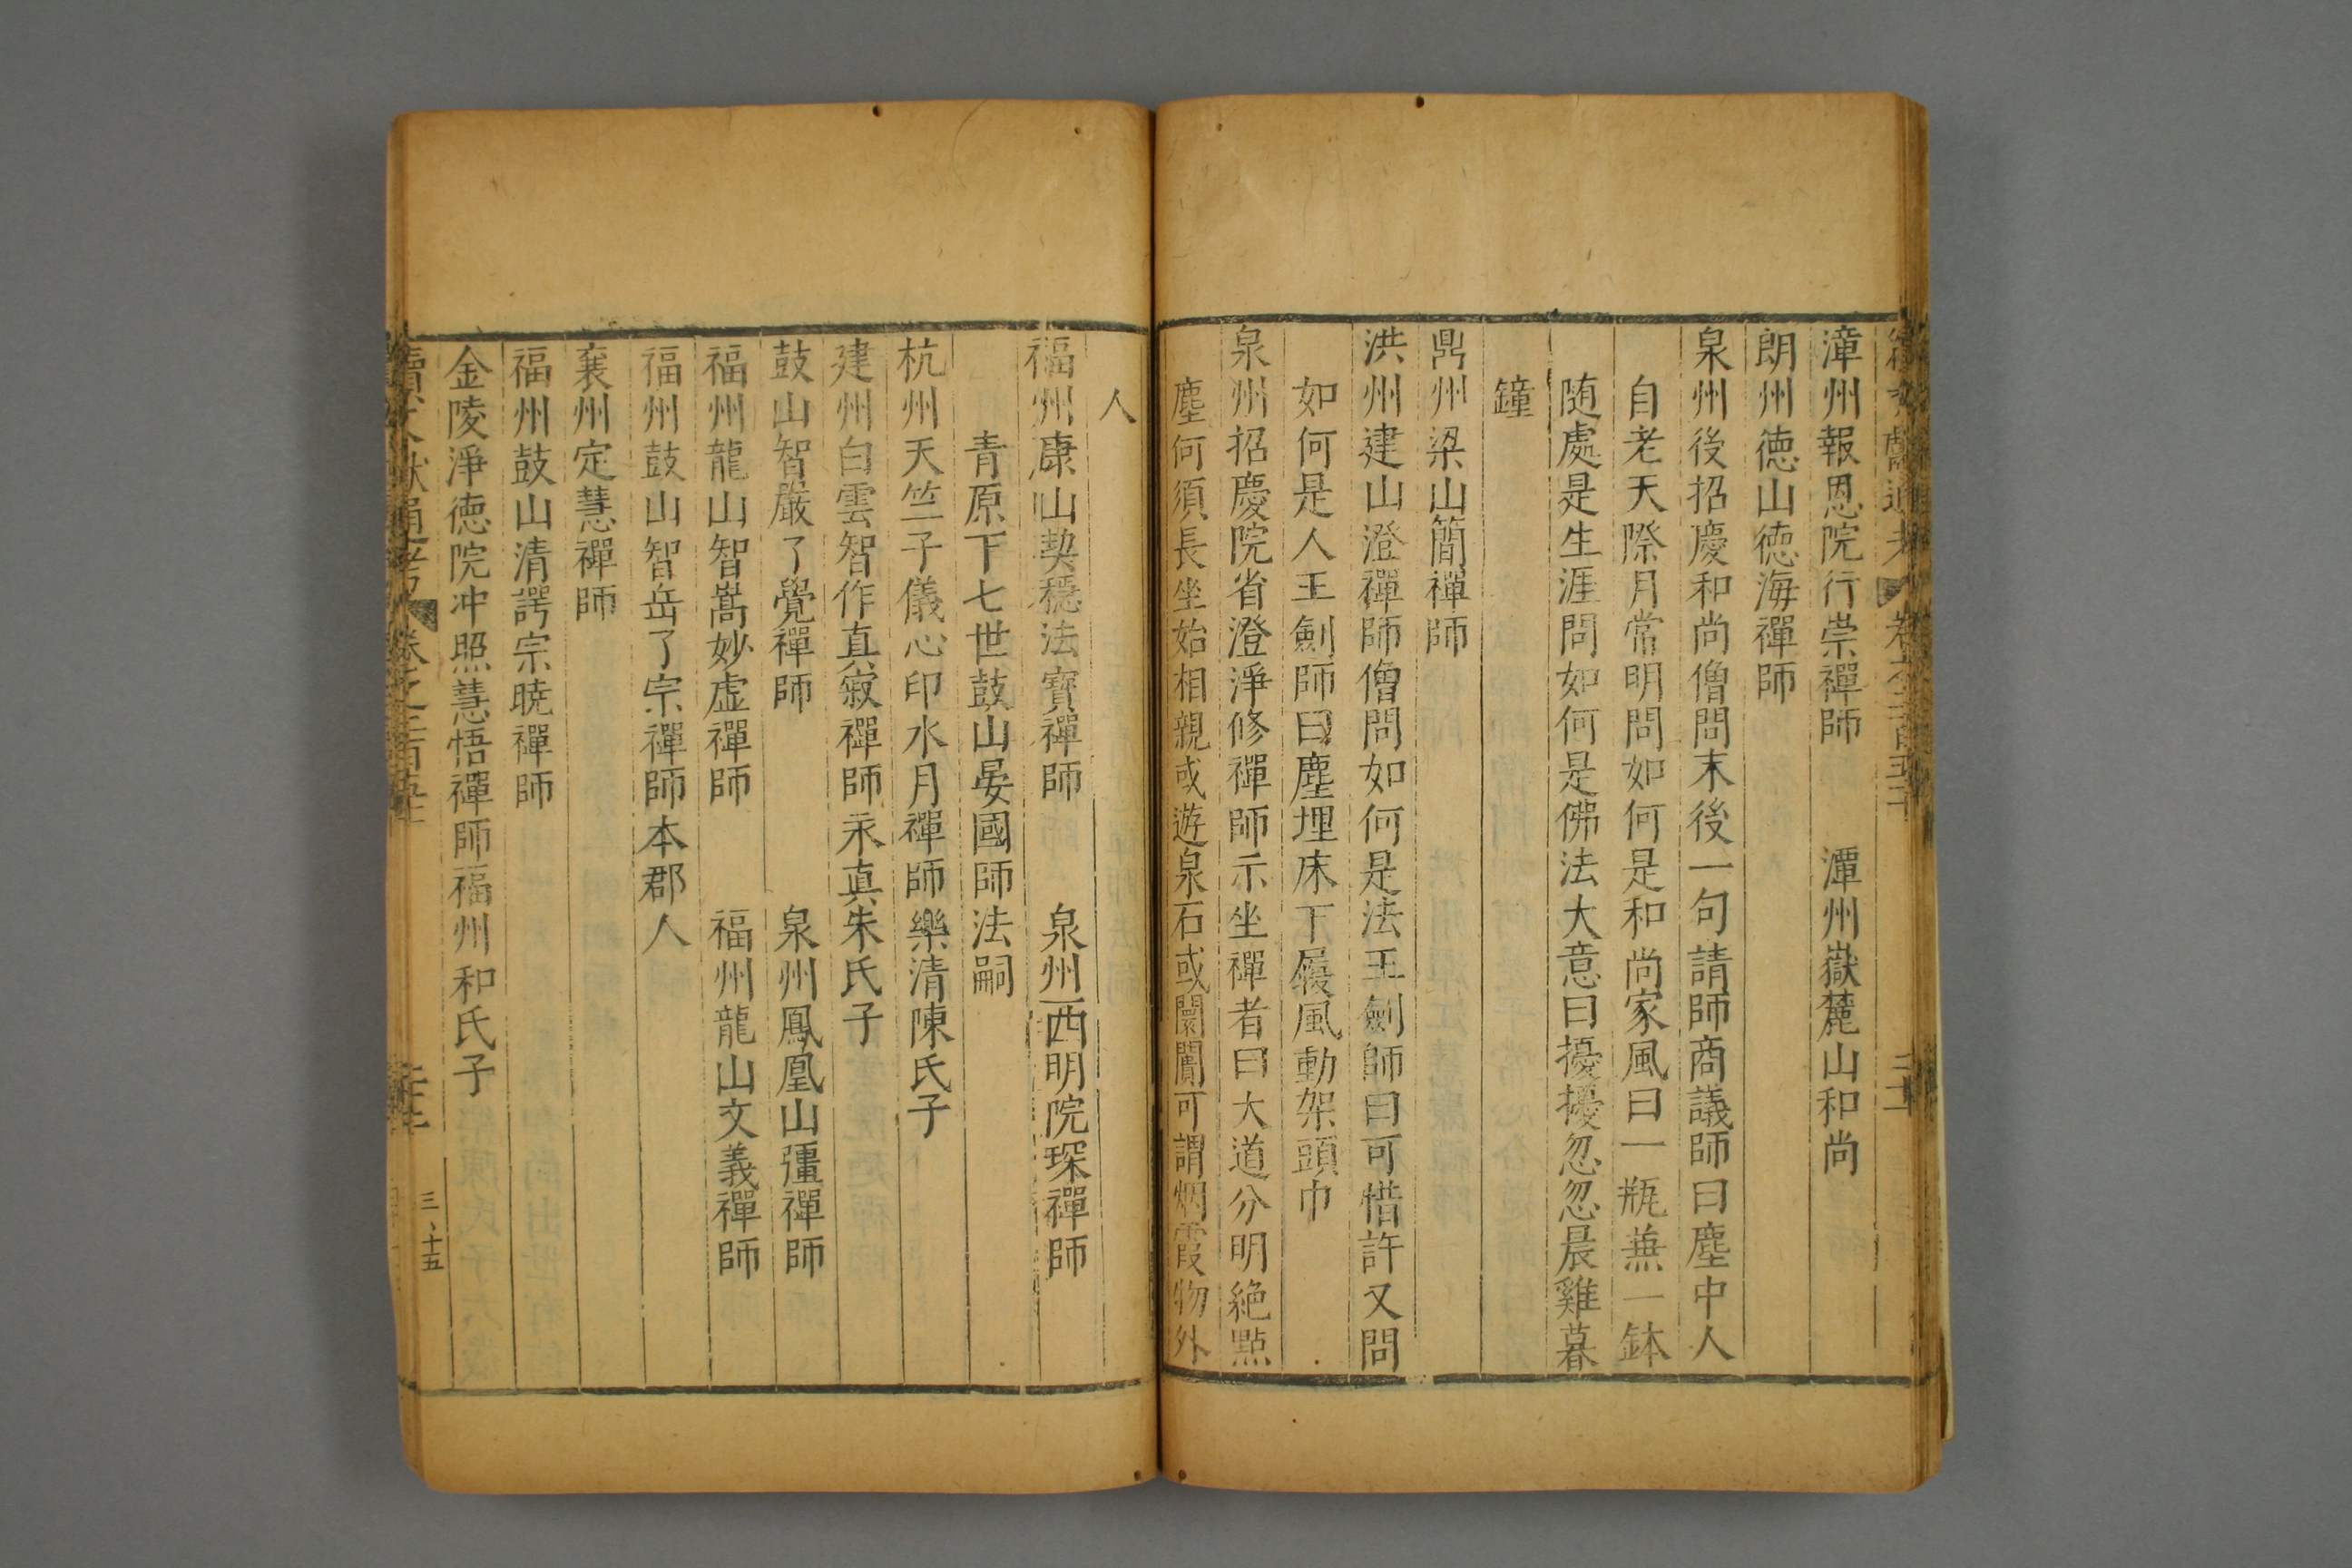 漳州報恩院行崇禪師　潭州嶽麓山和尚
朗州德山德海禪師
泉州後招慶和尚僧問末後一句請師商議師曰塵中人
自老天際月常明問如何是和尚家風曰一瓶蕪一鉢
随處是生涯問如何是佛法大意曰擾擾忽忽晨雞暮
鐘
鼎州梁山簡禪師
洪州建山澄禪師僧問如何是法王劍師曰可惜許又問
如何是人王劍師曰塵埋床下履風動架頭巾
泉州招慶院省澄淨修禪師示坐禪者曰大道分明絶點
塵何須長坐始相親或遊泉石或闤闠可謂烟霞物外
人
福州康山契穩法寶禪師　泉州西明院琛禪師
青原下七世鼓山晏國師法嗣
杭州天竺子儀心印水月禪師樂清陳氏子
建州白雲智作真寂禪師永真朱氏子
鼓山智嚴了覺禪師　泉州鳳凰山彊禪師
福州龍山智嵩妙虚禪師　福州龍山文義禪師
福州鼓山智岳了宗禪師本郡人
襄州定慧禪師
福州鼓山清諤宗曉禪師
金陵淨德院冲照慧悟禪師福州和氏子
續文獻通考
三、十五